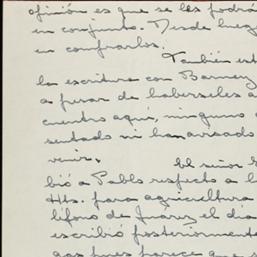 opinión es que se les podrá
en conjunto. Desde lueg
en comprarlos.
También est
la escritura con Barney
a pesar de haberseles a
cuentro aquí, ninguno
sentado ni han avisado
venir.    El señor
bió a Pablo respecto a l
Hts. para agricultura
léfono de Juárez el día
escribió posteriormente
pues parece que